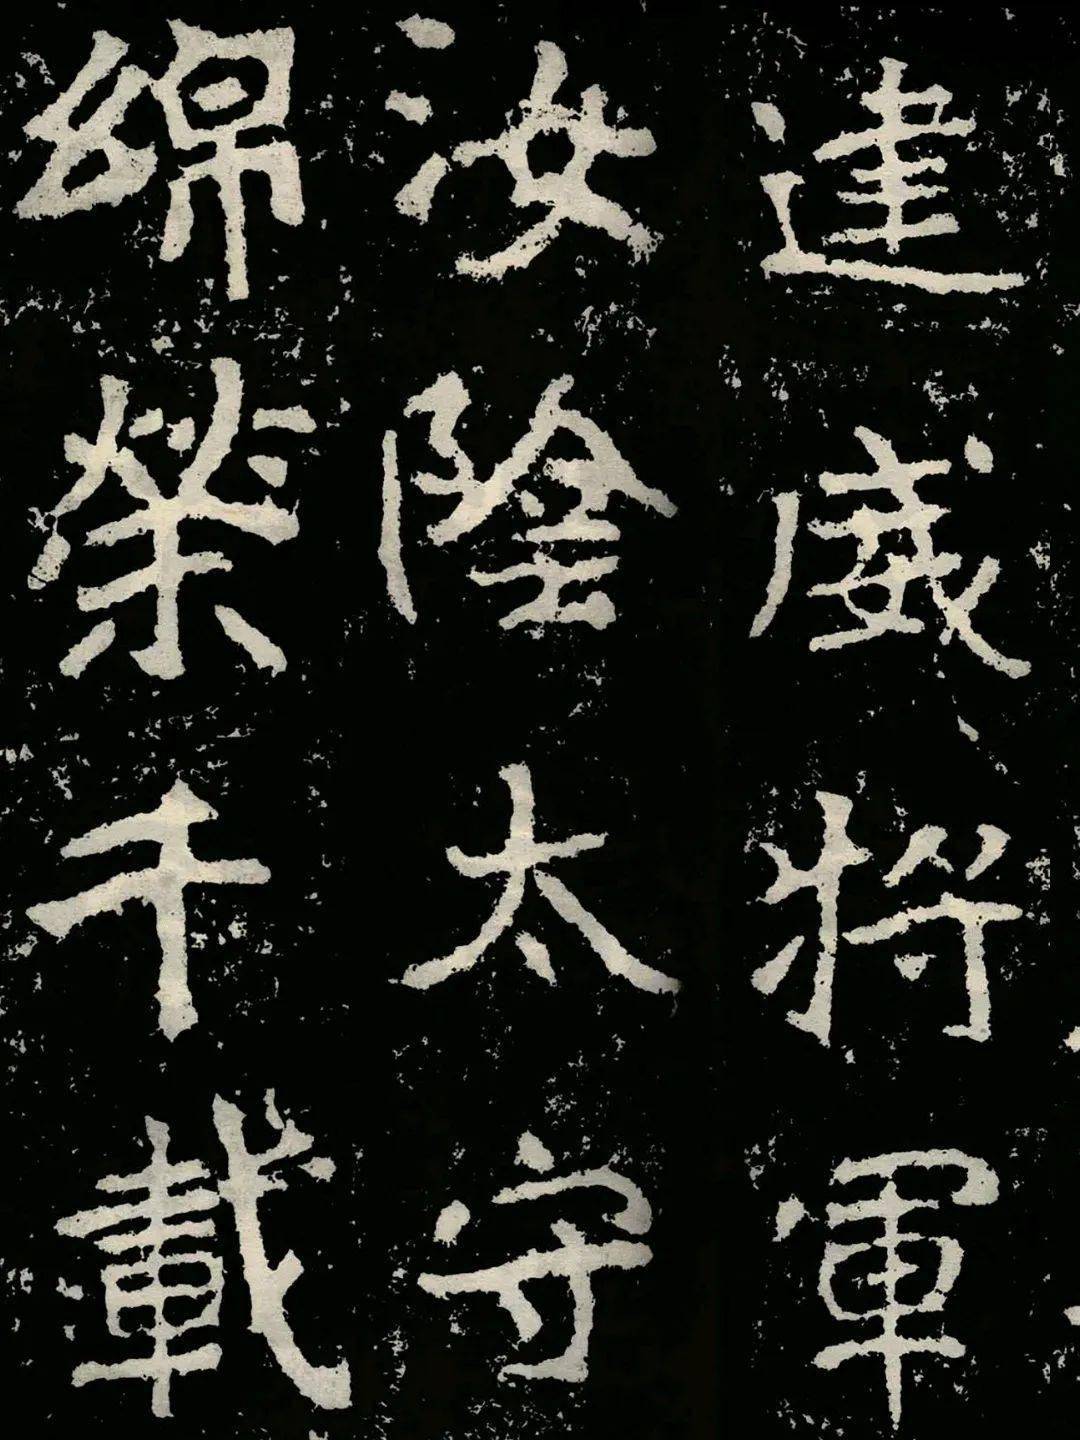 建威將軍
汝陰太守
綿榮千載